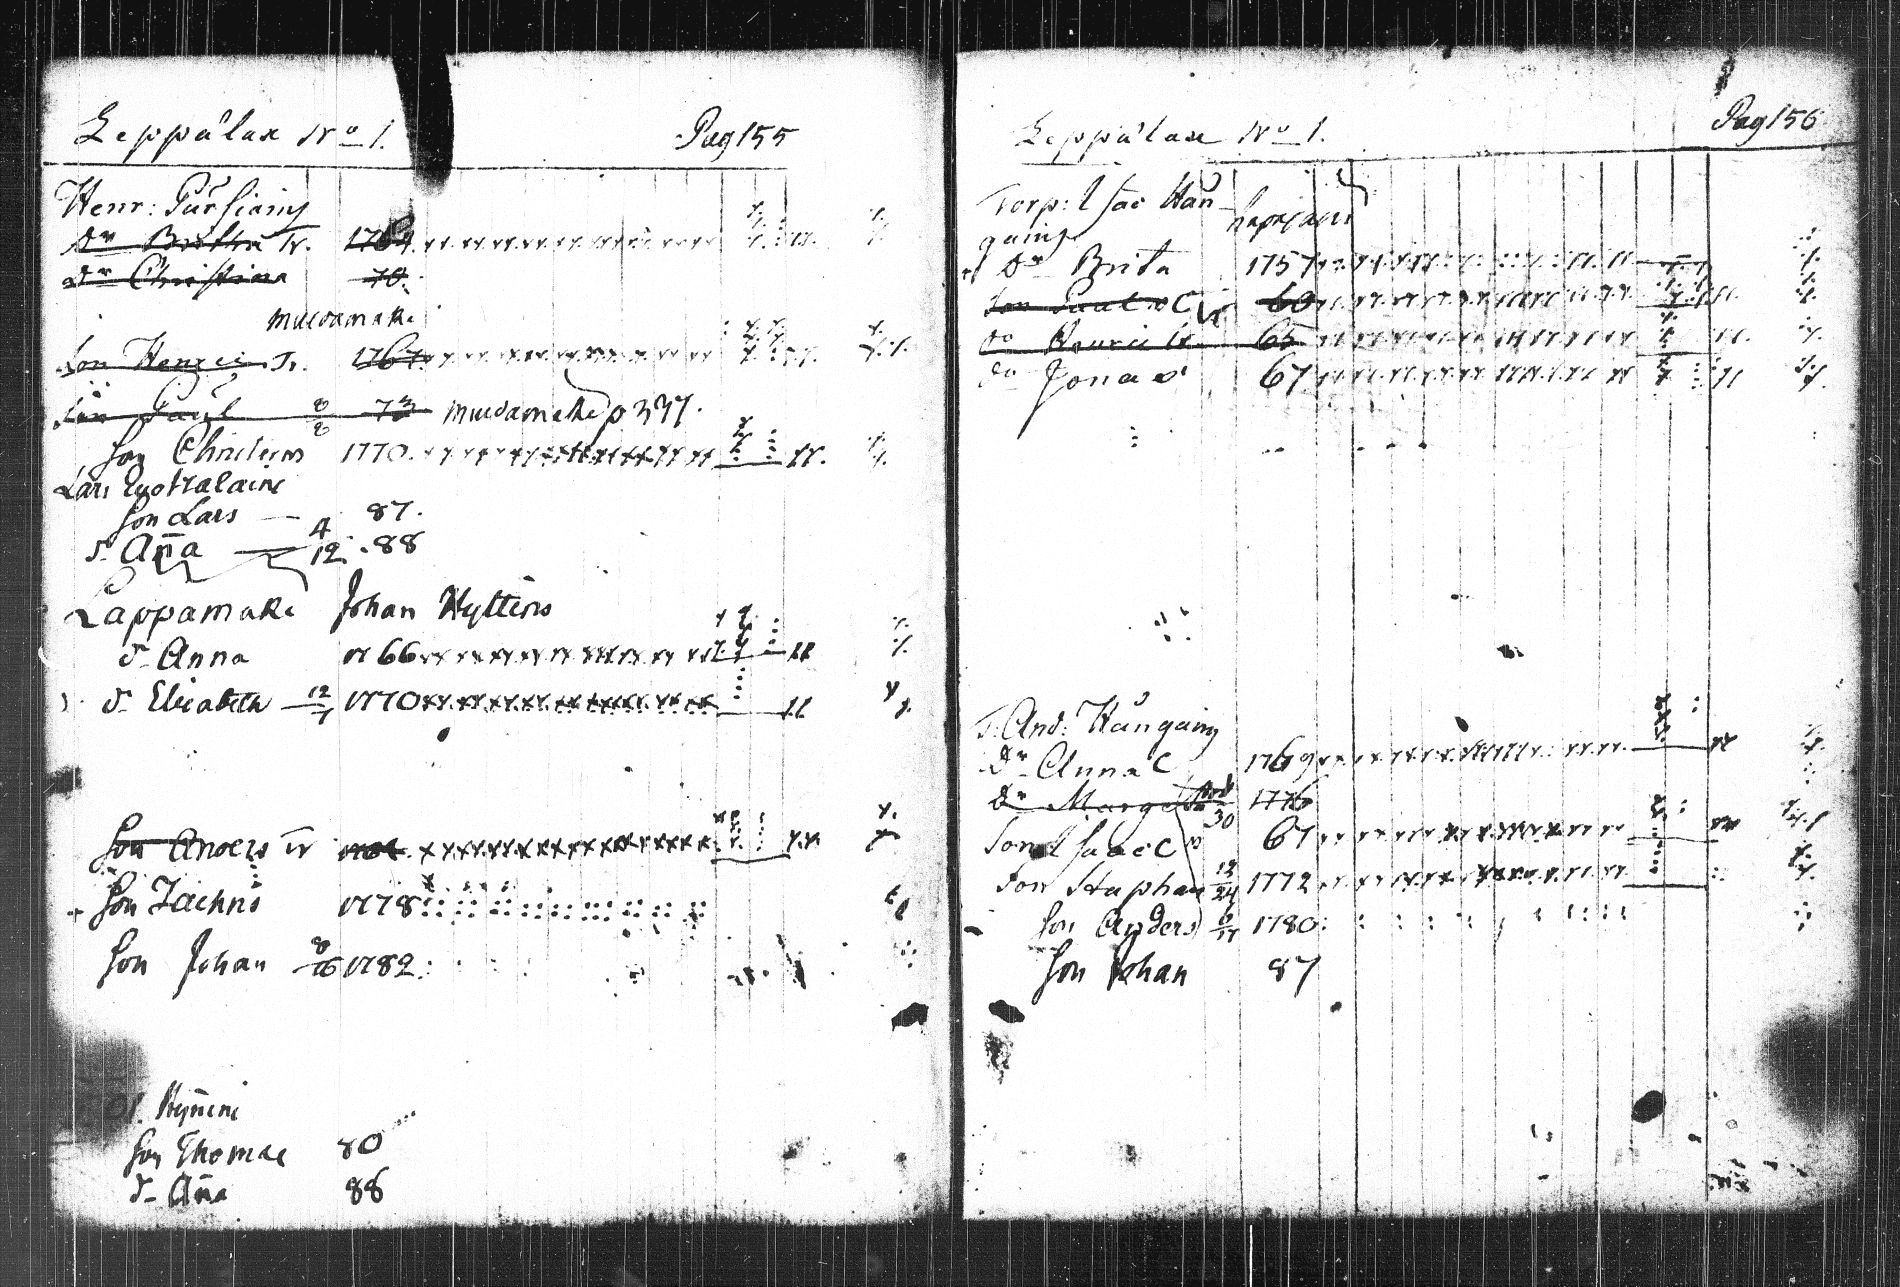 Leppälax No 1.
Pag 155
Henr: Pursiainę
Dr Britha Tr. 1764
Dr Christina 70.
muldamäki
Son Henric Tr. 1767
Son Påhl 8/2 73 muldamäki p 337.
Son Christern 1770.
Lars
Son Lars — 87.
d. Ana 4/12 88
Lappamäki Johan Hyttinē
d. Anna 1766
d. Elisabeth 12/1 1770
Son Anders Tr
Son Zachris 1778
Son Johan 8/16 1782
Ol. Hyninē
Son Thomas 80
d. Ana 88
Leppälax No 1.
Pag 156
Torp: Isac Kån
gainę
Dr Brita 1757
Son Paul C 60
Do Henric Tr. 65
Do Jonas 67
T. And: Kångainę
Dr Anna C 1769
Dr Margeta död 30 1776
Son Isaac C 67
Son Staphan 12/24 1772
Son Anders 1780
Son Johan 87